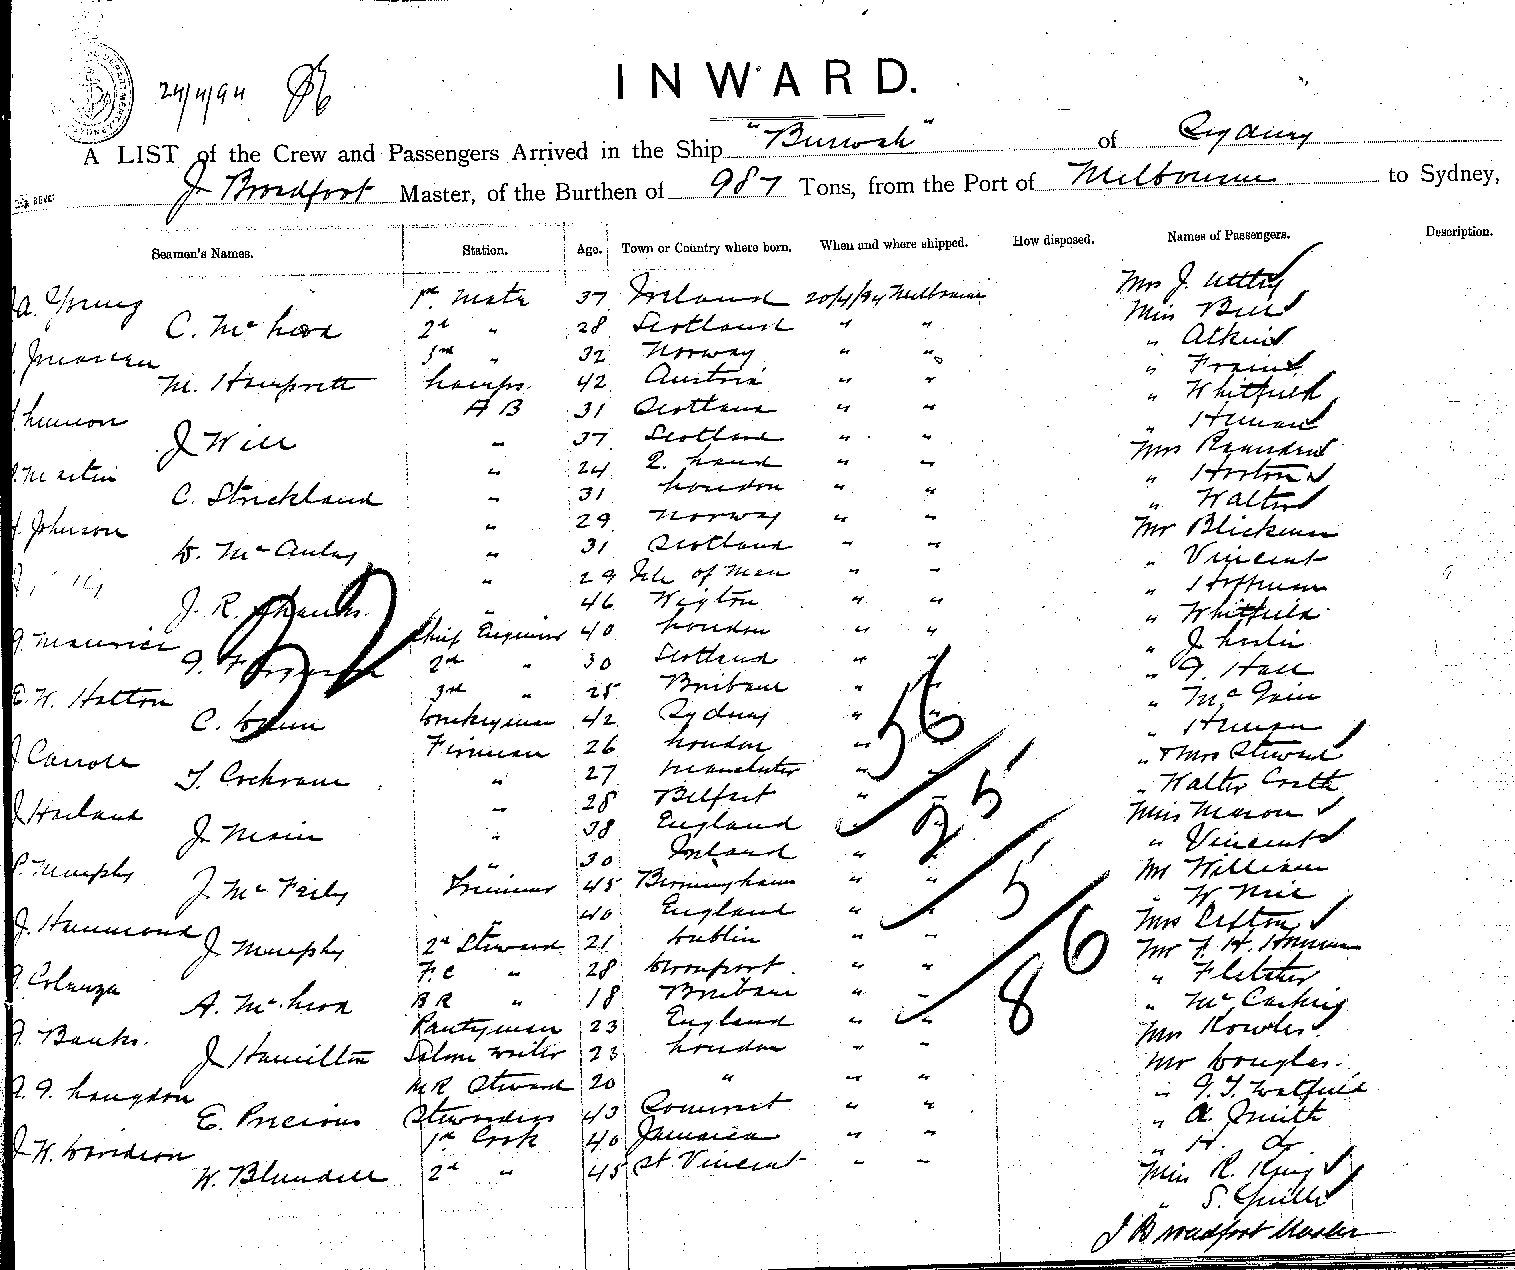 24/4/94
INWARD.
A LIST of the Crew and Passengers Arrived in the Ship "Burwah" of Sydney
J Broadfoot Master, of the Burthen of 987 Tons, from the Port of Melbourne to Sydney,
Seamen's Names. Station. Age. Town or Country where born. When and where shipped. How disposed. Names of Passengers. Description.
A. Young 1st Mate 37 Ireland 20/4/94 Melbourne Mrs J.
C. McLeod 2d " 28 Scotland " " Miss Bell
3rd " 32 Norway " " " Atkins
M. Lamps. 42 Austria " "
AB 31 Scotland " " " Whitfield
J Will " 37 Scotland " "
Martin " 24 Q. Land " " Mrs
C. Strickland " 31 London " " " Horton
Johnson " 29 Norway " " " Walter
D. McAulay " 31 Scotland " " Mr Blickman
" 29 Isle of Man " " " Vincent
J. R. " 46 Wigton " " " Hoffman
Maurice Chief Engineer 40 London " " " Whitfield
2nd " 30 Scotland " " " J Leslie
E. W. Hatton 3rd " 25 Brisbane " " " Hall
C. Dunn Donkeyman 42 Sydney " " " McGain
J Carroll Fireman 26 London " "
T. Cochrane " 27 Manchester " " " & Mrs Steward
J Harland " 28 Belfast " " " Walter
J. Main " 38 England " " Miss Mason
P. Murphy " 30 Ireland " " " Vincent
J. Trimmer 45 Birmingham " " Mr William
J. Hammond " 40 England " " " W
J. Murphy 2d Steward 21 Dublin " " Mrs Sefton
F.C. " 28 Devonport " " Mr F. H.
A. McLeod BR " 18 Brisbane " " " Fletcher
J. Banks Pantryman 23 England " "
J Hamilton Saloon Waiter 23 London " " Mrs Rowles
Langdon MR Steward 20 " " " Mr Douglas
E. Precious Stewardess 43 Somerset " "
J. W. Davidson 1st Cook 40 Jamaica " " " A. Smith
W. Blundell 2d " 45 St Vincent " " " H. do
Miss R. King
" S.
56
25
5
86
J Broadfoot Master